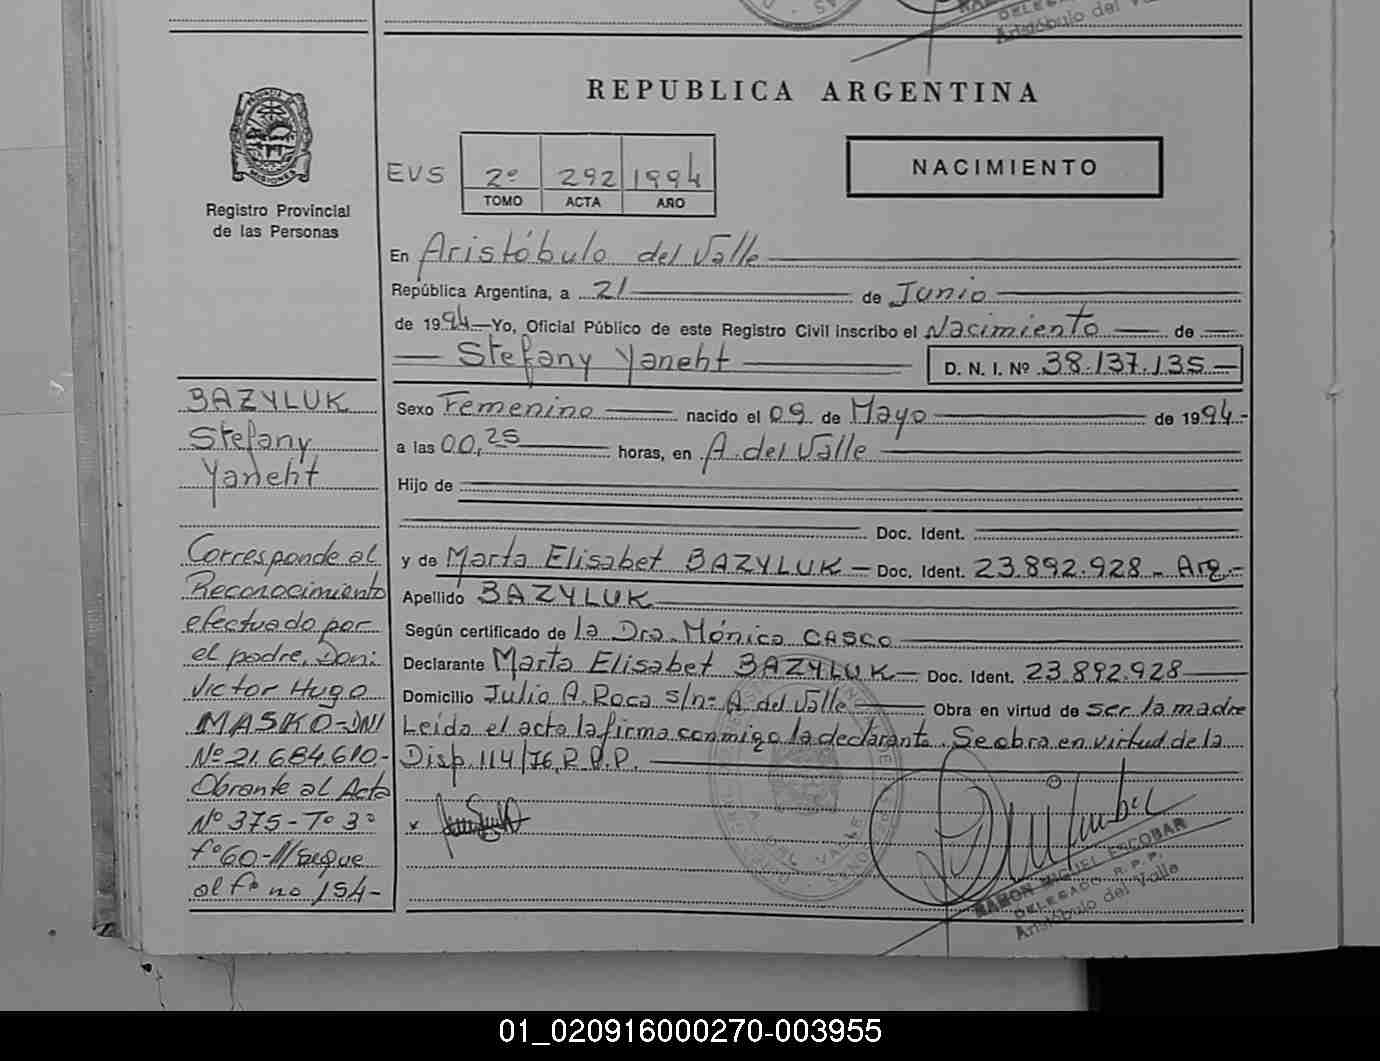 REPUBLICA ARGENTINA
Registro Provincial
de las Personas
EVS 2º 292 1994
TOMO ACTA AÑO
NACIMIENTO
En Aristóbulo del Valle
República Argentina, a 21 de Junio
de 1994 Yo, Oficial Público de este Registro Civil inscribo el Nacimiento de
Stefany Yaneht D. N. I. Nº 38.137.135
BAZYLUK
Stefany
Yaneht
Sexo Femenino nacido el 09 de Mayo de 1994.-
a las 00,25 horas, en A. del Valle
Hijo de
Doc. Ident.
y de Marta Elisabet BAZYLUK - Doc. Ident. 23.892.928 - Arg.-
Apellido BAZYLUK
Según certificado de la Dra. Mónica CASCO
Declarante Marta Elisabet BAZYLUK - Doc. Ident. 23.892.928
Domicilio Julio A. Roca s/nº A. del Valle Obra en virtud de ser la madre
Leída el acta la firma conmigo la declarante. Se obra en virtud de la
Disp. 114/76 R.P.P.
Corresponde al
Reconocimiento
efectuado por
el padre, Don:
Victor Hugo
MASKO-DNI
Nº 21.684.610-
Obrante al Acta
Nº 375 - Tº 3º
fº 60 -//Sigue
al fº no 154-
RAMON MIGUEL ESCOBAR
DELEGADO R.P.P.
Aristóbulo del Valle
01_020916000270-003955